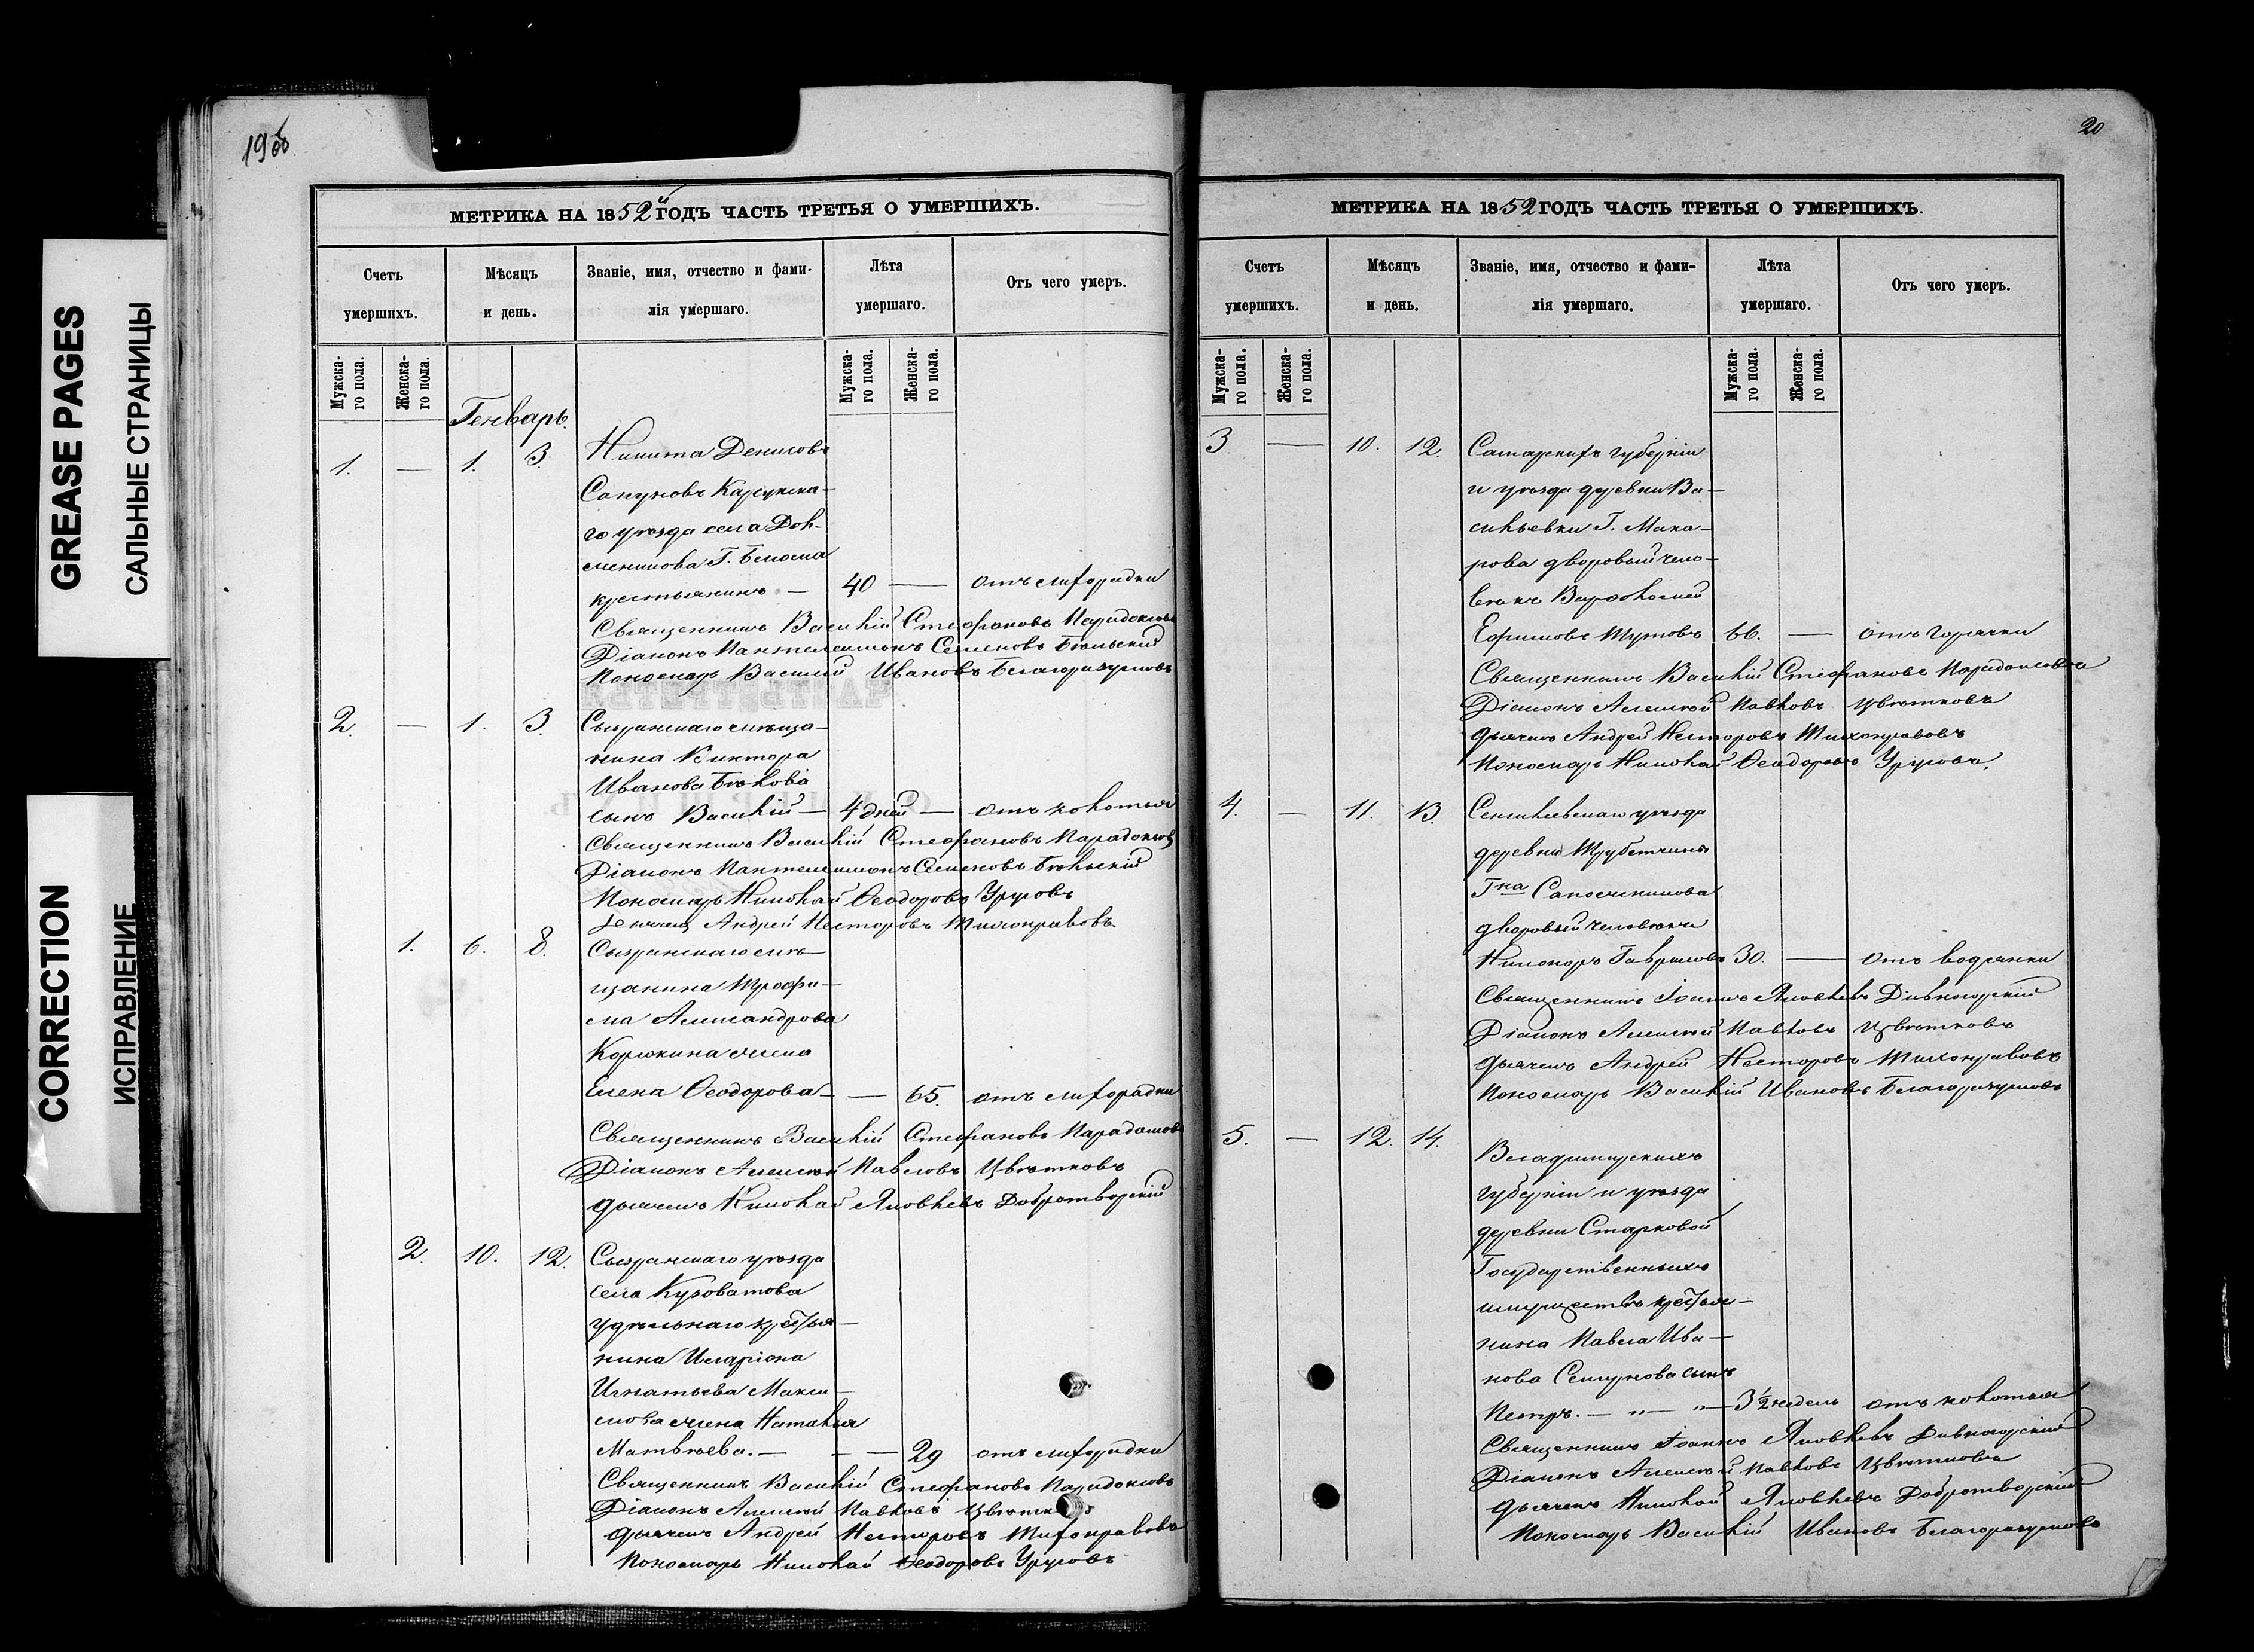 GREASE PAGES
САЛЬНЫЕ СТРАНИЦЫ
CORRECTION
ИСПРАВЛЕНИЕ
19об
МЕТРИКА НА 1852й ГОДЪ ЧАСТЬ ТРЕТЬЯ О УМЕРШИХЪ.
Счетъ умершихъ.
Мѣсяцъ и день.
Званіе, имя, отчество и фами-
лія умершаго.
Лѣта умершаго.
Отъ чего умеръ.
Мужска-
го пола.
Женска-
го пола.
Мужска-
го пола.
Женска-
го пола.
Генварь.
1. — 1. 3. Никита Денисовъ
Сапуновъ Карсунска-
го уѣзда села
Г.
крестьянинъ — 40 — отъ лихорадки
Священникъ Василій Стефановъ Парадоксовъ
Діаконъ Пантелеимонъ Семеновъ Бѣльскій
Пономарь Василій Ивановъ Благоразумовъ
2. — 1. 3. Сызранскаго мѣща-
нина Виктора
Иванова Бѣлова
сынъ Василій — 4 дней — отъ колотья
Священникъ Василій Стефановъ Парадоксов
Діаконъ Пантелеимонъ Семеновъ Бѣльскій
Пономарь Николай Ѳеодоровъ Урусовъ
Дьячец Андрей Несторовъ Тихонравовъ.
1. 6. 8. Сызранскаго мѣ-
щанина Трофи-
ма Александрова
Корюкина жена
Елена Ѳеодорова — — 65. отъ лихорадки
Священникъ Василій Стефановъ Парадоксов
Діаконъ Алексѣй Павловъ Цвѣтковъ
Дьячекъ Николай Яковлевъ Добротворскій
2. 10. 12. Сызранскаго уѣзда
села Кузоватова
удѣльнаго крестья-
нина Иларіона
Игнатьева Макси-
мова жена Наталья
Матвѣева. — — — 29 отъ лихорадки
Священникъ Василій Стефановъ Парадоксовъ
Діаконъ Алексѣй Павловъ Цвѣтк
Дьячекъ Андрей Несторовъ Тихонравовъ
Пономарь Николай Ѳеодоровъ Урусовъ
20
МЕТРИКА НА 1852 ГОДЪ ЧАСТЬ ТРЕТЬЯ О УМЕРШИХЪ.
Счетъ умершихъ.
Мѣсяцъ и день.
Званіе, имя, отчество и фами-
лія умершаго.
Лѣта умершаго.
Отъ чего умеръ.
Мужска-
го пола.
Женска-
го пола.
Мужска-
го пола.
Женска-
го пола.
3 — 10. 12. Самарскихъ губерніи
и уѣзда деревни Ва-
сильевки Г. Мака-
рова дворовый чело-
вѣкъ Варѳоломей
Ефимовъ Шутовъ 66. — отъ горячки
Священникъ Василій Стефановъ Парадоксовъ
Діаконъ Алексѣй Павловъ Цвѣтковъ
Дьячекъ Андрей Несторовъ Тихонравовъ
Пономарь Николай Ѳеодоровъ Урусовъ.
4. — 11. 13. Сенгилеевскаго уѣзда
деревни Трубетчины
Гна Сапожникова
дворовый человѣкъ
Никоноръ Гавриловъ 30. — отъ водянки
Священникъ Іоаннъ Яковлевъ Дивногорскій
Діаконъ Алексѣй Павловъ Цвѣтковъ
Дьячекъ Андрей Несторовъ Тихонравовъ
Пономарь Василій Ивановъ Благоразумовъ
5. — 12. 14.
Владимирскихъ
губерніи и уѣзда
деревни Старковой
Государственныхъ
имуществъ крестья-
нина Павла Ива-
нова Семунова сынъ
Петръ. — „ — „ — 3 1/2 недѣль отъ колотья
Священникъ Іоаннъ Яковлевъ Дивногорскій
Діаконъ Алексѣй Павловъ Цвѣтковъ
Дьячекъ Николай Яковлевъ Добротворскій
Пономарь Василій Ивановъ Благоразумовъ